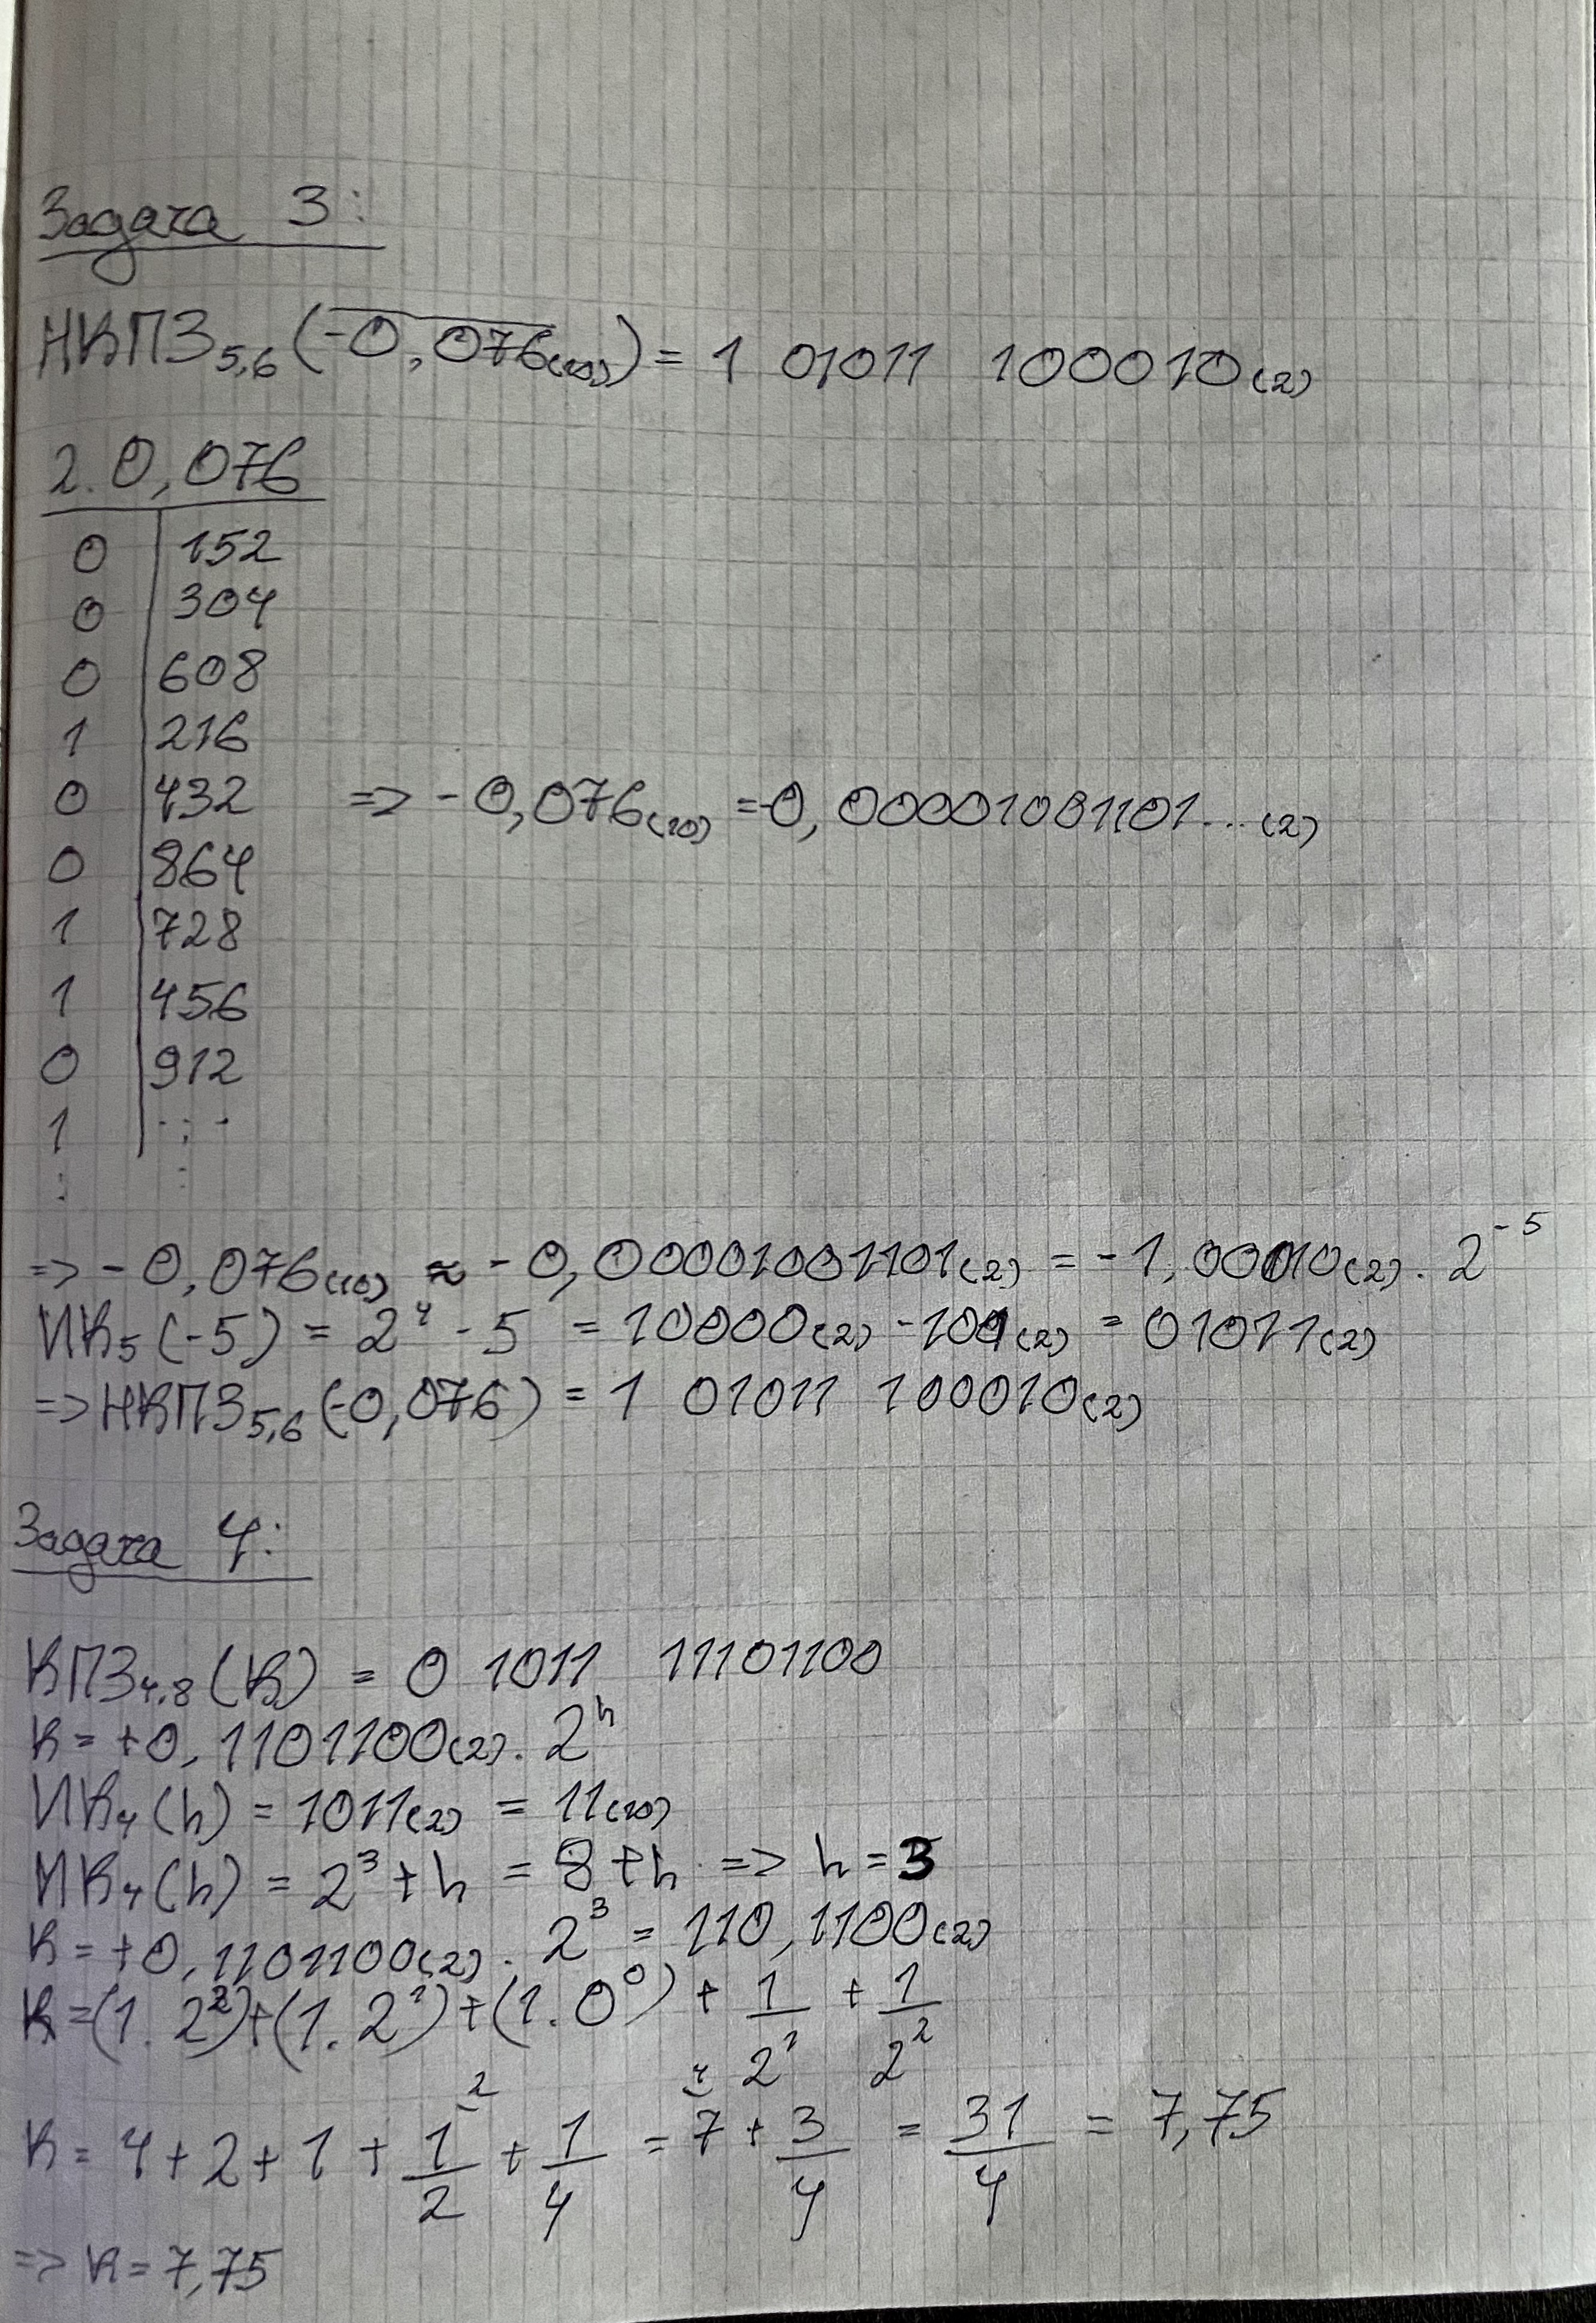 Задача 3:
НКПЗ₅,₆(-0,076₍₁₀₎) = 1 01011 100010₍₂₎
2. 0,076
0 | 152
0 | 304
0 | 608
1 | 216
0 | 432 => -0,076₍₁₀₎ = -0,00001001101...₍₂₎
0 | 864
1 | 728
1 | 456
0 | 912
1 | ...
: :
=> -0,076₍₁₀₎ ≈ -0,00001001101₍₂₎ = -1,00010₍₂₎ . 2⁻⁵
ИК₅(-5) = 2⁴ - 5 = 10000₍₂₎ - 101₍₂₎ = 01011₍₂₎
=> НКПЗ₅,₆(-0,076) = 1 01011 100010₍₂₎
Задача 4:
КПЗ₄,₈(К) = 0 1011 11101100
К = +0,1101100₍₂₎ . 2ʰ
ИК₄(h) = 1011₍₂₎ = 11₍₁₀₎
ИК₄(h) = 2³ + h = 8 + h => h = 3
К = +0,1101100₍₂₎ . 2³ = 110,1100₍₂₎
К = (1. 2²) + (1. 2¹) + (1. 0⁰) + 1/2¹ + 1/2²
К = 4 + 2 + 1 + 1/2 + 1/4 = 7 + 3/4 = 31/4 = 7,75
=> К = 7,75